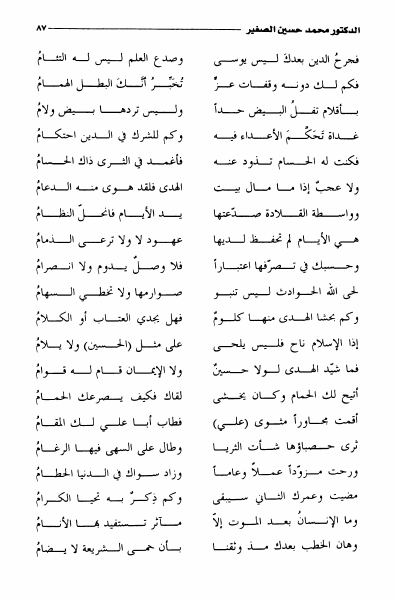 الدكتور محمد حسين الصغير ٨٧
فجرحُ الدين بعدكَ ليس يوسى وصدع العلم ليس له التئامُ
فكم لك دونه وقفات عزٍّ تُخَبِّرُ أنَّكَ البطل الهمامُ
بأقلام تفلُ البيض حداً وليس تردها بيض ولامُ
غداة تَحَكَّمَ الأعداء فيه وكم للشرك في الدين احتكامُ
فكنت له الحسام تذود عنه فأغمد في الثرى ذاك الحسامُ
ولا عجبٌ إذا ما مال بيت الهدى فلقد هوى منه الدعامُ
وواسطة القلادة صدّعتها يد الأيام فانحلّ النظامُ
هي الأيام لم تحفظ لديها عهود لا ولا ترعى الذمامُ
وحسبك في تصرّفها اعتباراً فلا وصلٌ يدوم ولا انصرامُ
لحى الله الحوادث ليس تنبو صوارمها ولا تخطي السهامُ
وكم بحشا الهدى منها كلومٌ فهل يجدي العتاب أو الكلامُ
إذا الإسلام ناح فليس يلحى على مثل (الحسين) ولا يلامُ
فما شيّد الهدى لولا حسينٌ ولا الإيمان قام له قوامُ
أتيح لك الحمام وكان يخشى لقاك فكيف يصرعك الحمامُ
أقمت مجاوراً مثوى (علي) فطاب أبا علي لك المقامُ
ثرى حصباؤها شأت الثريا وطال على السهى فيها الرغامُ
ورحت مزوّداً عملاً وعاماً وزاد سواك في الدنيا الحطامُ
مضيت وعمرك الثاني سيبقى وكم ذكرٌ به تحيا الكرامُ
وما الإنسانُ بعد الموت إلاّ مآثر تستفيد بها الأنامُ
وهان الخطب بعدك مذ وثقنا بأن حمى الشريعة لا يضامُ